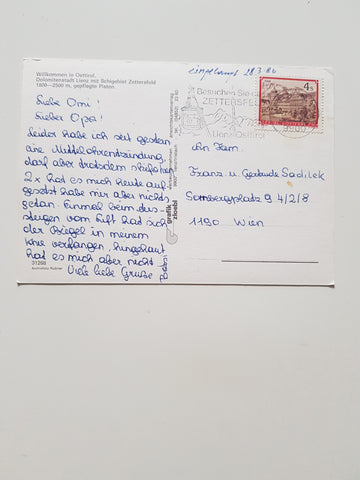 eingelangt 28.3.86
Willkommen in Osttirol.
Dolomitenstadt Lienz mit Schigebiet Zettersfeld
1800–2500 m, gepflegte Pisten.
Besuchen Sie
ZETTERSFELD
Lienz Osttirol
4 S
Liebe Omi!
Lieber Opa!
Leider habe ich seit gestern
eine Mittelohrentzündung,
darf aber trotzdem skifahren.
2x hat es mich heute auf-
gesetzt habe mir aber nichts
getan. Einmal beim Aus-
steigen vom Lift hat sich
der Bügel in meinem
Knie verfangen, hingehaut
hat es mich aber nicht.
Viele liebe Grüße
An Fam.
Franz u. Gertrude Sadilek
Sombergplatz 9/2/8
1190 Wien
grafik
zloebl
31268